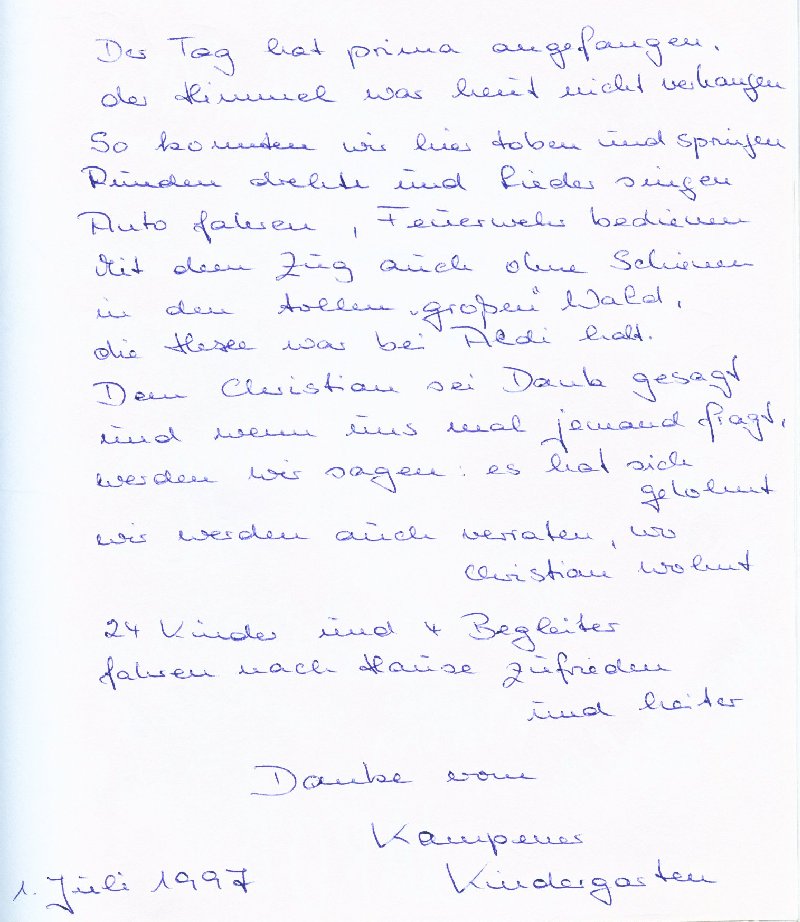 Der Tag hat prima angefangen,
der Himmel war heut nicht verhangen
So konnten wir hier toben und springen
Runden drehen und Lieder singen
Auto fahren, Feuerwehr bedienen
Mit dem Zug auch ohne Schienen
in den tollen „großen" Wald,
die Hexe war bei Aldi halt.
Dem Christian sei Dank gesagt
und wenn uns mal jemand fragt,
werden wir sagen: es hat sich
gelohnt
wir werden auch verraten, wo
Christian wohnt
24 Kinder und 4 Begleiter
fahren nach Hause zufrieden
und heiter
Danke vom
Kampener
Kindergarten
1. Juli 1997